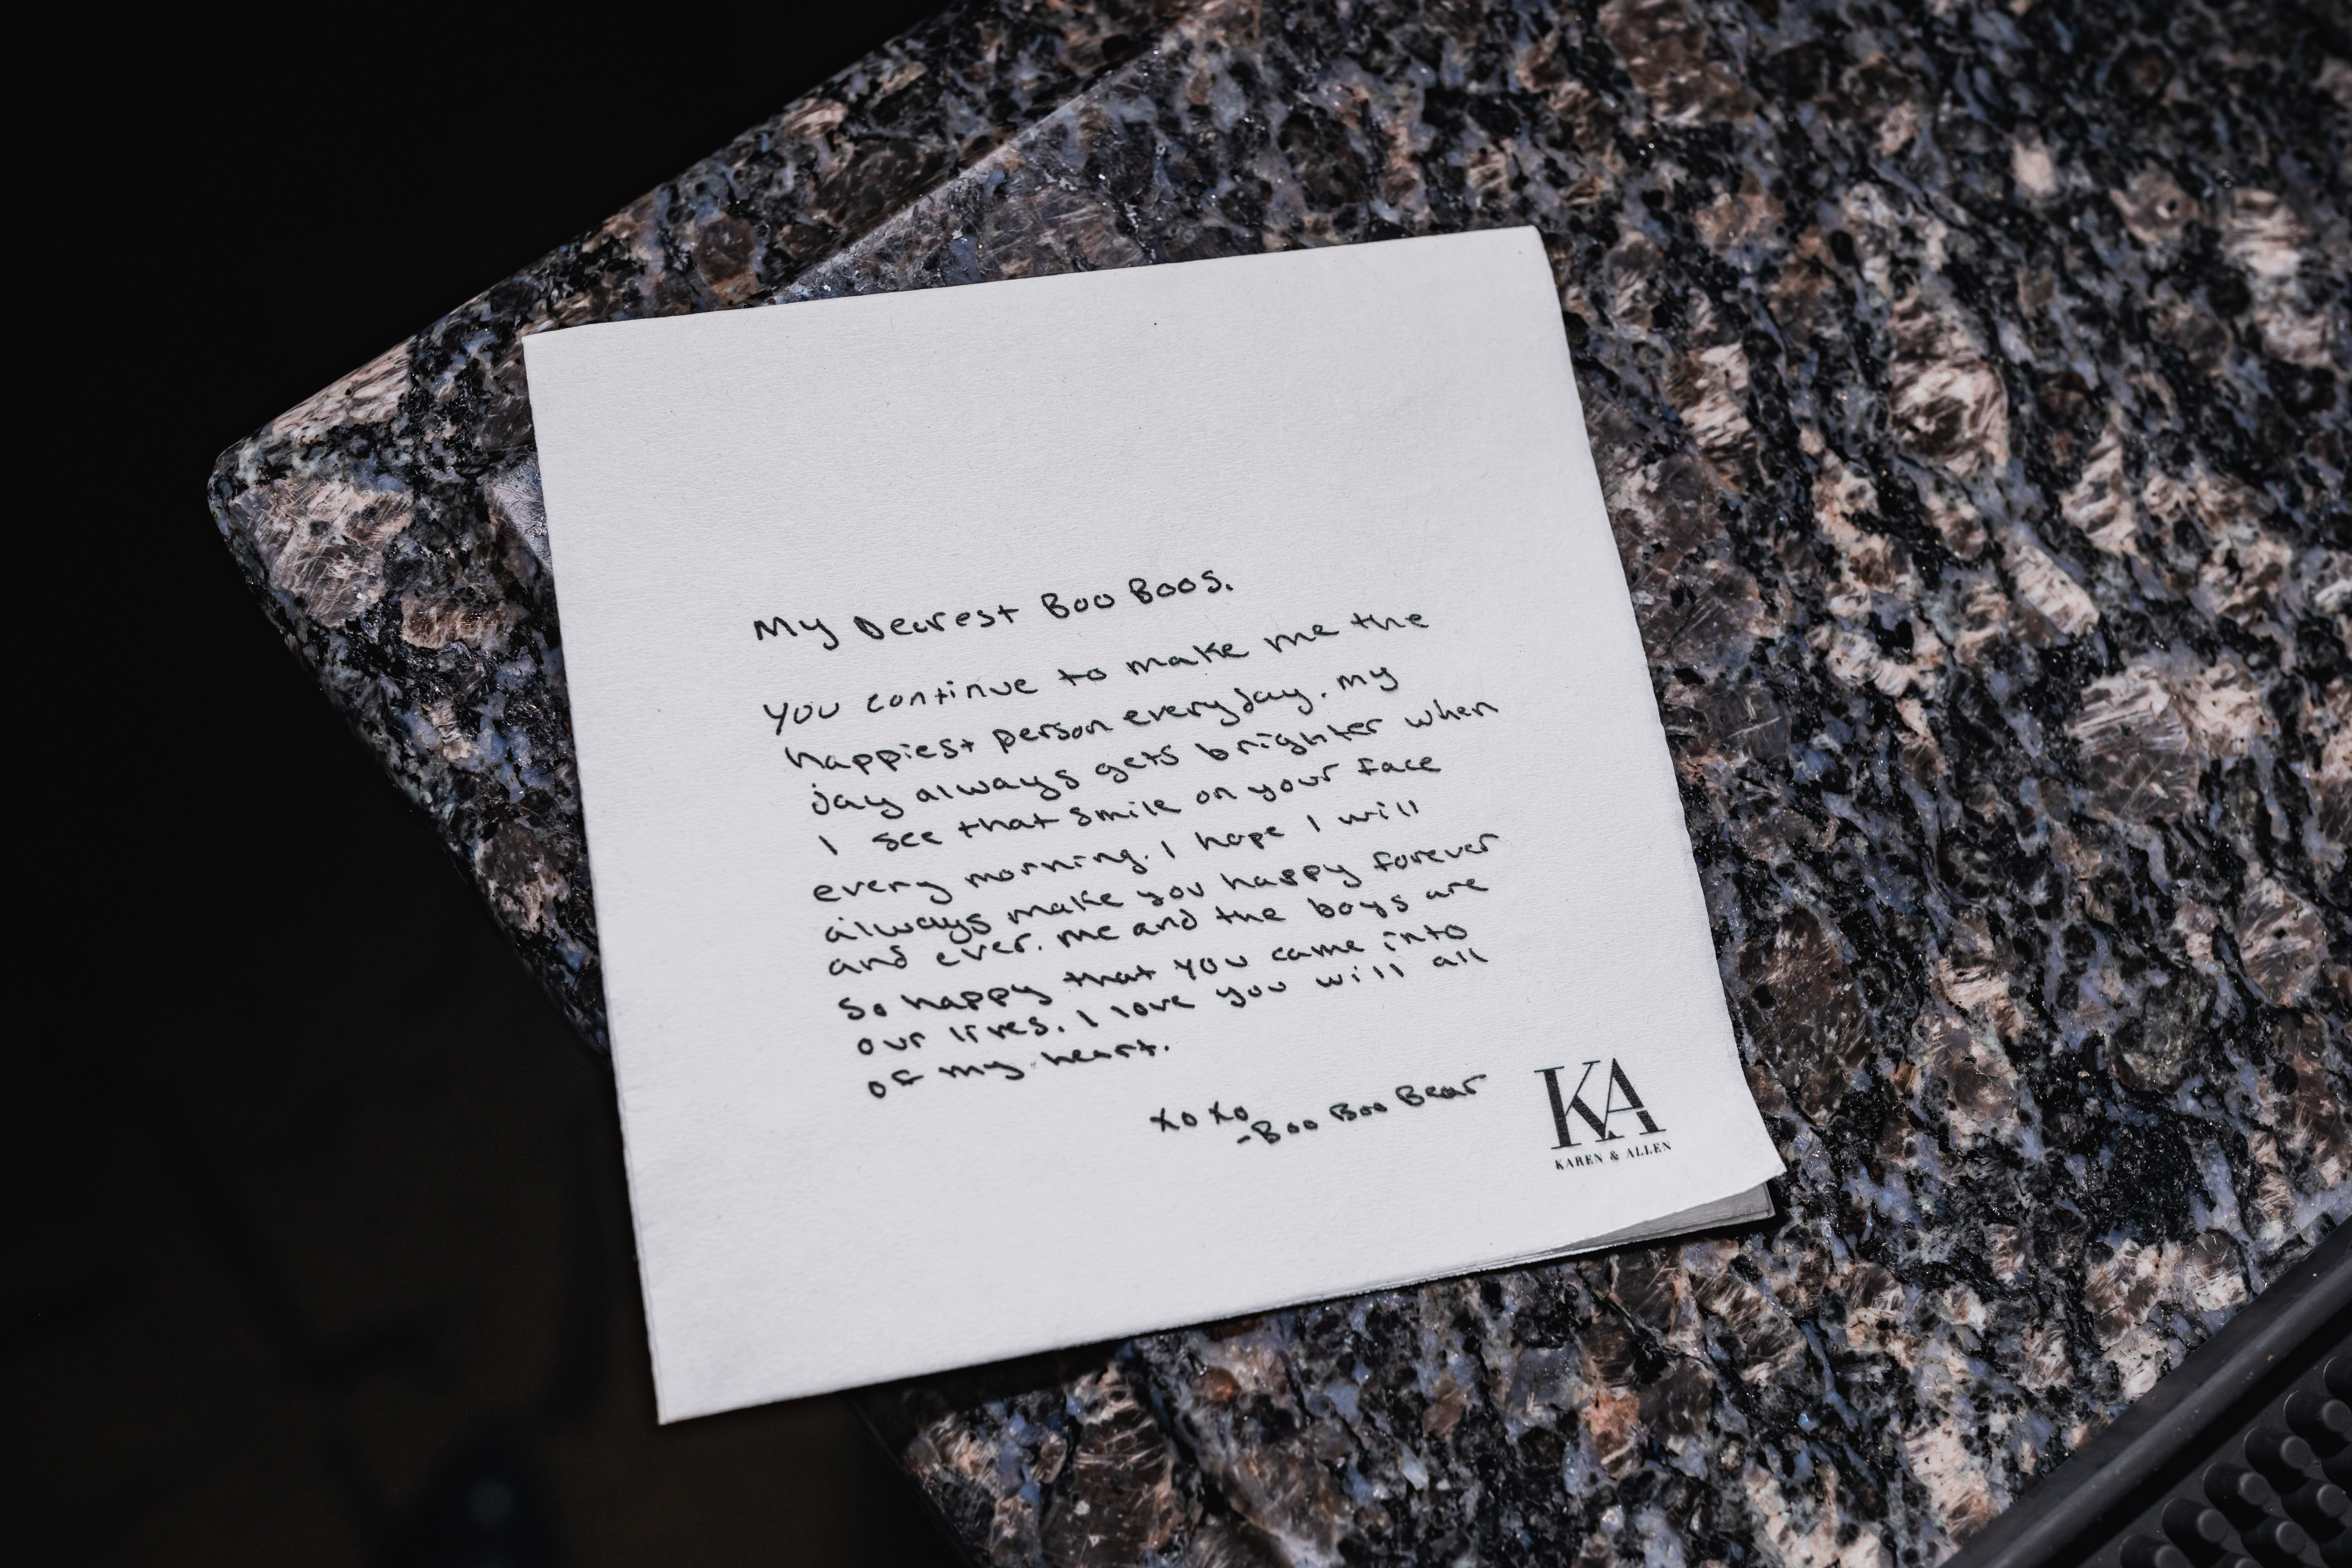 My Dearest Boo Boos.
You continue to make me the
happiest person everyday. My
day always gets brighter when
I see that smile on your face
every morning. I hope I will
always make you happy forever
and ever. Me and the boys are
so happy that you came into
our lives. I love you will all
of my heart.
xoxo
-Boo Boo Bear
KA
KAREN & ALLEN